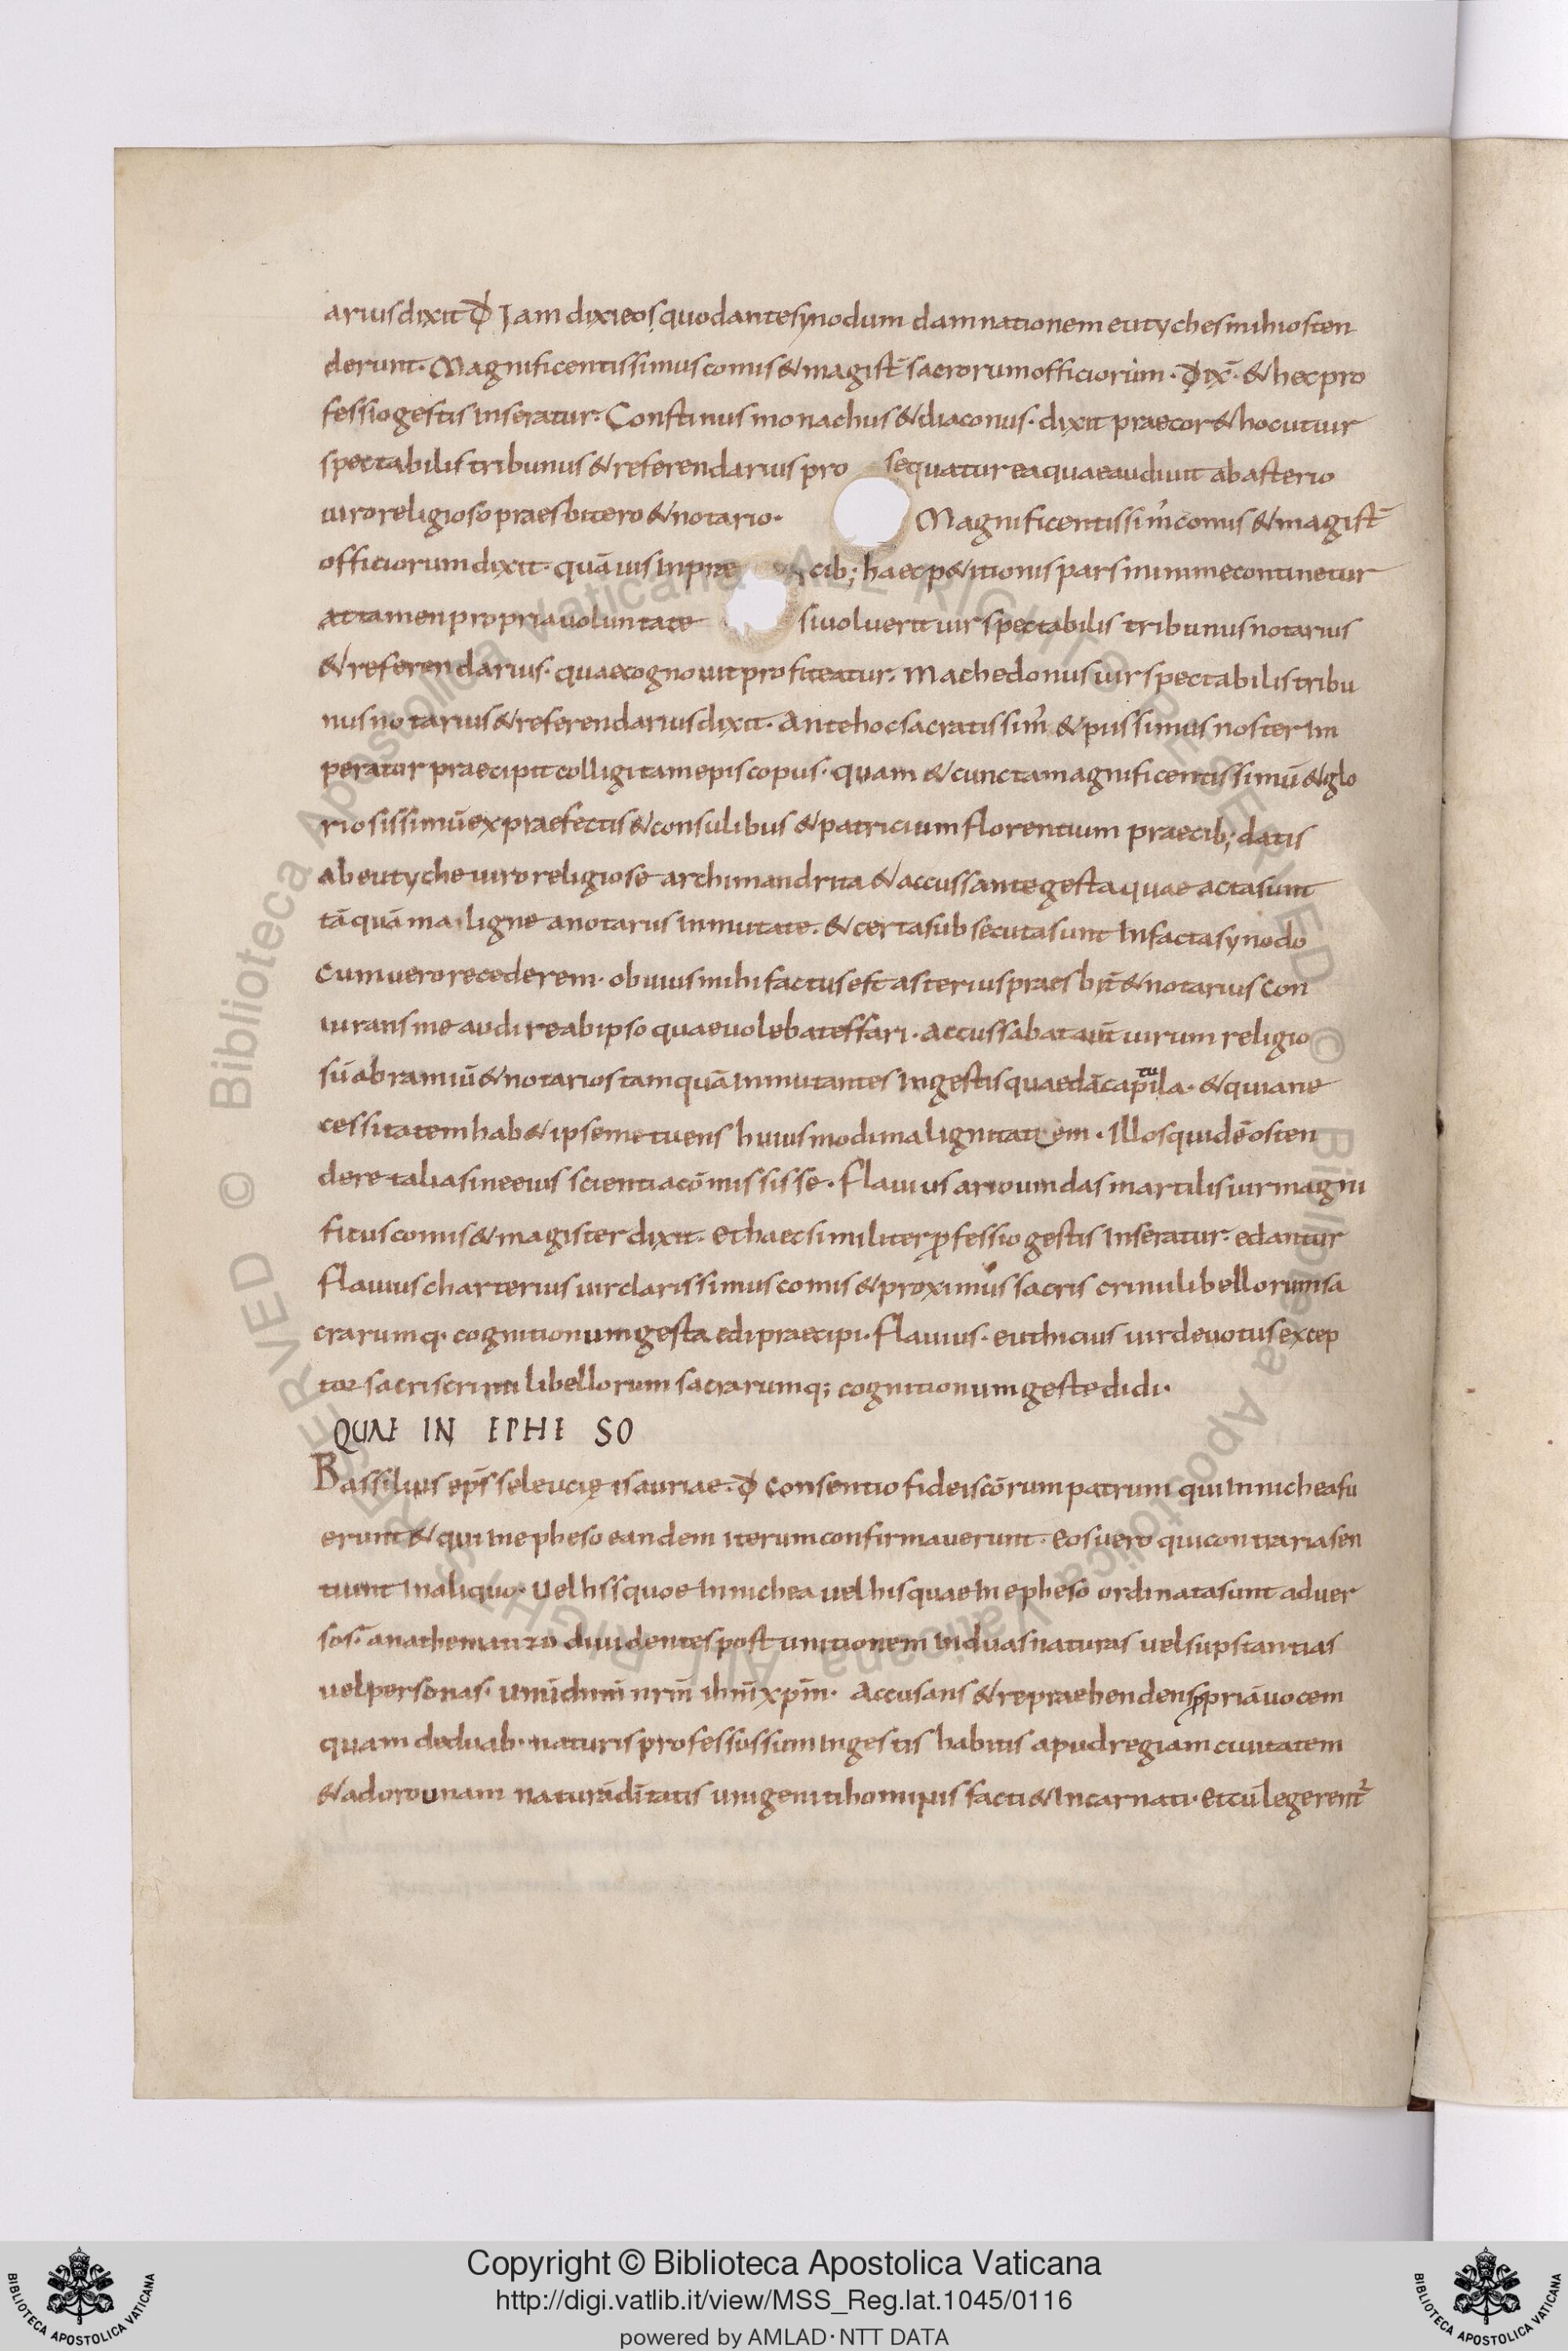 arius dixit đ Iam dixi eos quod ante synodum damnationem eutyches mihi osten
derunt. Magnificentissimus comis & magist̄ sacrorum officiorum. đix̄. & hec pro
fessio gestis inseratur. Constinus monachus & diaconus. dixit praecor & hoc ut uir
spectabilis tribunus & referendarius pro sequatur ea quae audiuit ab asterio
uiro religioso praesbitero & notario. Magnificentissim̄ comis & magist̄
officiorum dixit. quāuis in prae cib; haec p&itionis pars minime continetur
attamen propria uoluntate si uoluerit uir spectabilis tribunus notarius
& referendarius. quae cognouit profiteatur. Machedonus uir spectabilis tribu
nus notarius & referendarius dixit. Ante hoc sacratissim̄ & piissimus noster im
perator praecipit colligi tam episcopus. quam & cuncta magnificentissimū & glo
riosissimū ex praefectis & consulibus & patricium florentium praecib; datis
ab eutyche uiro religiose archimandrita & accussante gesta quae acta sunt
tāquā maligne a notariis inmutate. & certa subsecuta sunt in facta synodo
Cum uero recederem. obuius mihi factus est asterius praesbit̄ & notarius con
iurans me audire ab ipso quae uolebat effari. Accussabat aut̄ uirum religio
sū abramiū & notarios tamquā inmutantes in gestis quaedā capitula. & quia ne
cessitatem hab& ipse metuens huiusmodi malignitatem. Illos quidē osten
dere talia sine eius scientia cōmississe. Flauius arioumdas martilis uir magni
ficus comis & magister dixit. Et haec similiter ꝓfessio gestis inseratur. edantur
Flauius charterius uir clarissimus comis & proximus sacris crinii libellorum sa
crarumq. cognitionum gesta edi praecipi. Flauius. euthicius uir deuotus excep
tor sacri scrinii libellorum sacrarumq; cognitionum geste didi.
QUAE IN EPHESO
Bassilius ep̄s seleucię isauriae. đ consentio fidei scōrum patrum qui in nichea fu
erunt & qui in epheso eandem iterum confirmauerunt. Eos uero qui contraria sen
tiunt in aliquo. Uel hiis quae in nichea uel his quae in epheso ordinata sunt aduer
sos. anathematizo diuidentes post unitionem in duas naturas uel supstantias
uel personas. unū dnm̄ nrm̄ ihm̄ xpm̄. Accusans & repraehendens ꝓpriā uocem
quam de duab. naturis professus sum in gestis habitis apud regiam ciuitatem
& adoro unam naturā dītatis unigeniti hominis facti & incarnati. Et cū legerent̄
Copyright © Biblioteca Apostolica Vaticana
http://digi.vatlib.it/view/MSS_Reg.lat.1045/0116
powered by AMLAD·NTT DATA